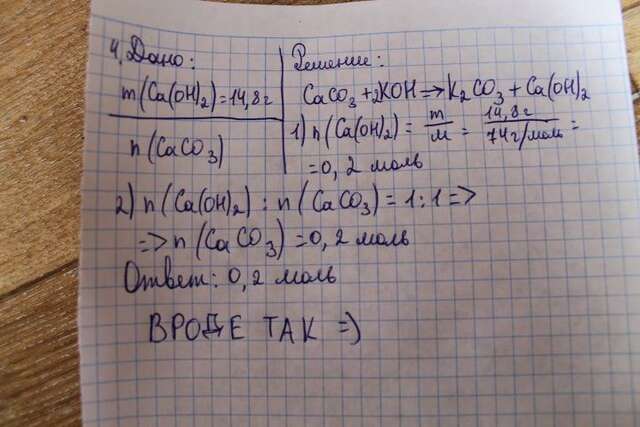 4. Дано:
m(Ca(OH)2)=14,8г
n(CaCO3)
Решение:
CaCO3 + 2KOH => K2CO3 + Ca(OH)2
1) n(Ca(OH)2) = m/M = 14,8г/74г/моль =
=0,2 моль
2) n(Ca(OH)2) : n(CaCO3) = 1:1 =>
=> n(CaCO3) = 0,2 моль
Ответ: 0,2 моль
ВРОДЕ ТАК =)